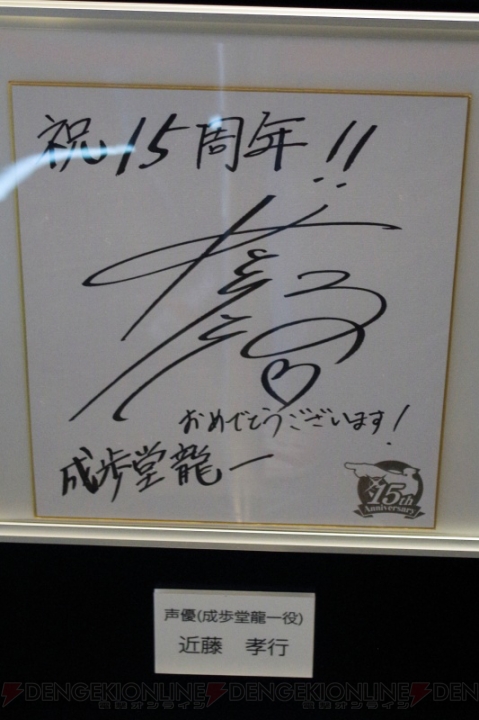 祝15周年!!
おめでとうございます!
成歩堂龍一
15th
Anniversary
声優(成歩堂龍一役)
近藤 孝行
DENGEKIONLINE DENGEKIONLINE
電撃オンライン 電撃オンライン